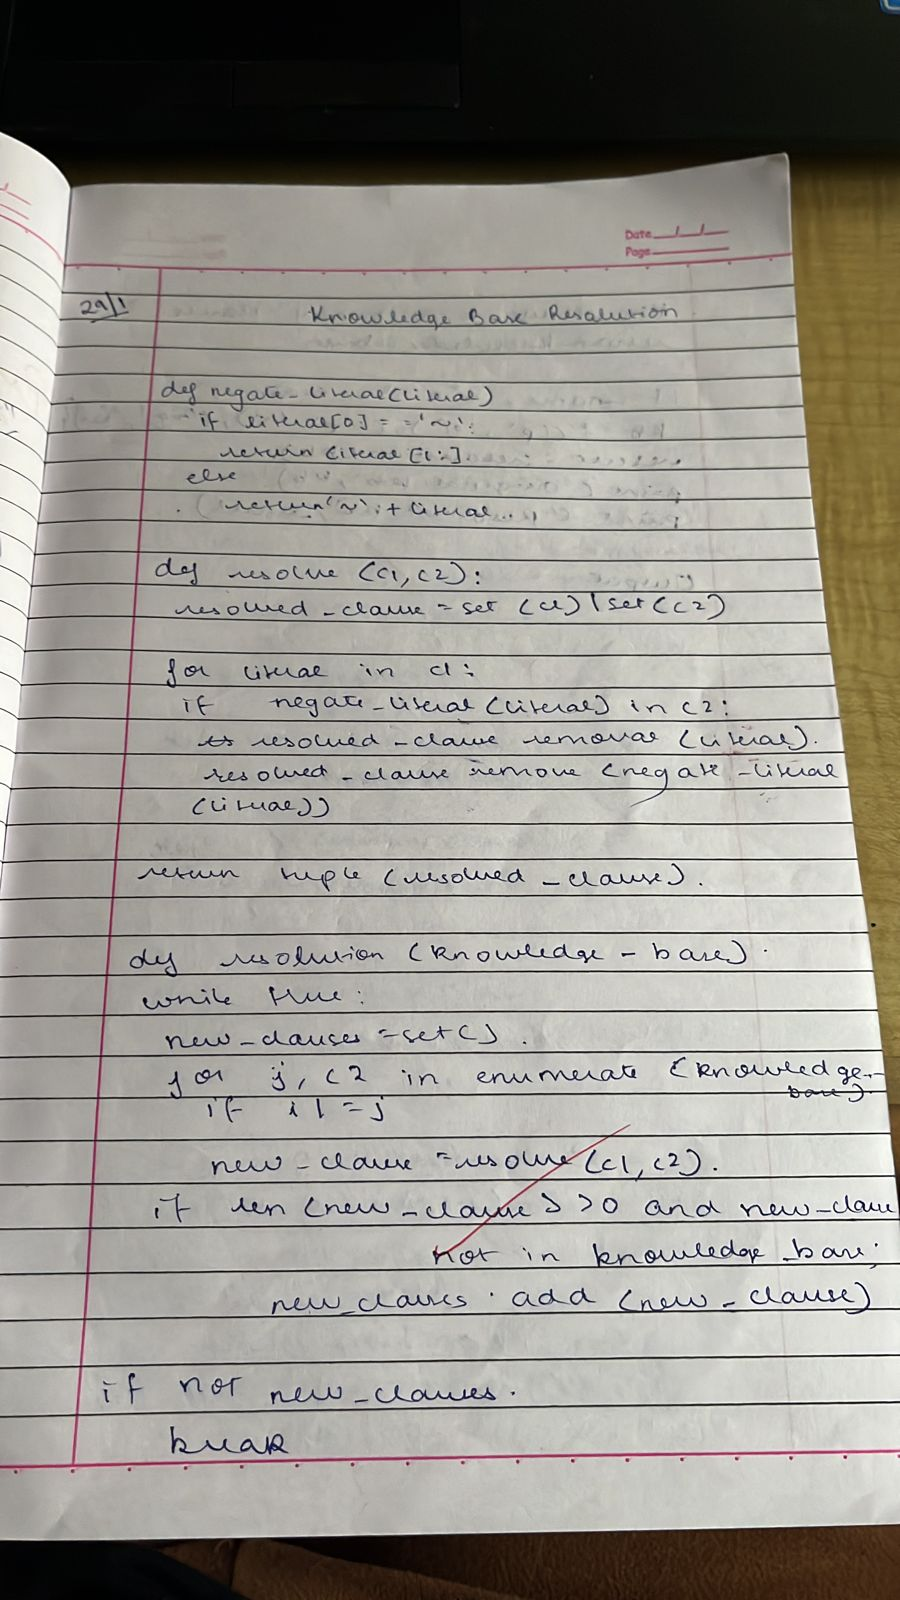 Date
Page
29/1
Knowledge Base Resolution
def negate_literal(literal)
if literal[0] = ='~':
return literal [1:].
else
return'~' + literal
def resolve (c1, c2):
resolved - clause = set (c1) | set (c2)
for literal in c1:
if negate-literal (literal) in c2:
resolved - clause removal (literal).
resolved - clause remove (negate - literal
(literal))
return tuple (resolved - clause).
def resolution (knowledge - base).
while true:
new-clauses = set().
for j, c2 in enumerate (knowledge-
base)
if i != j
new - clause = resolve (c1, c2).
if len (new-clause) >0 and new-clause
not in knowledge base:
new_clauses . add (new - clause)
if not new_clauses.
break